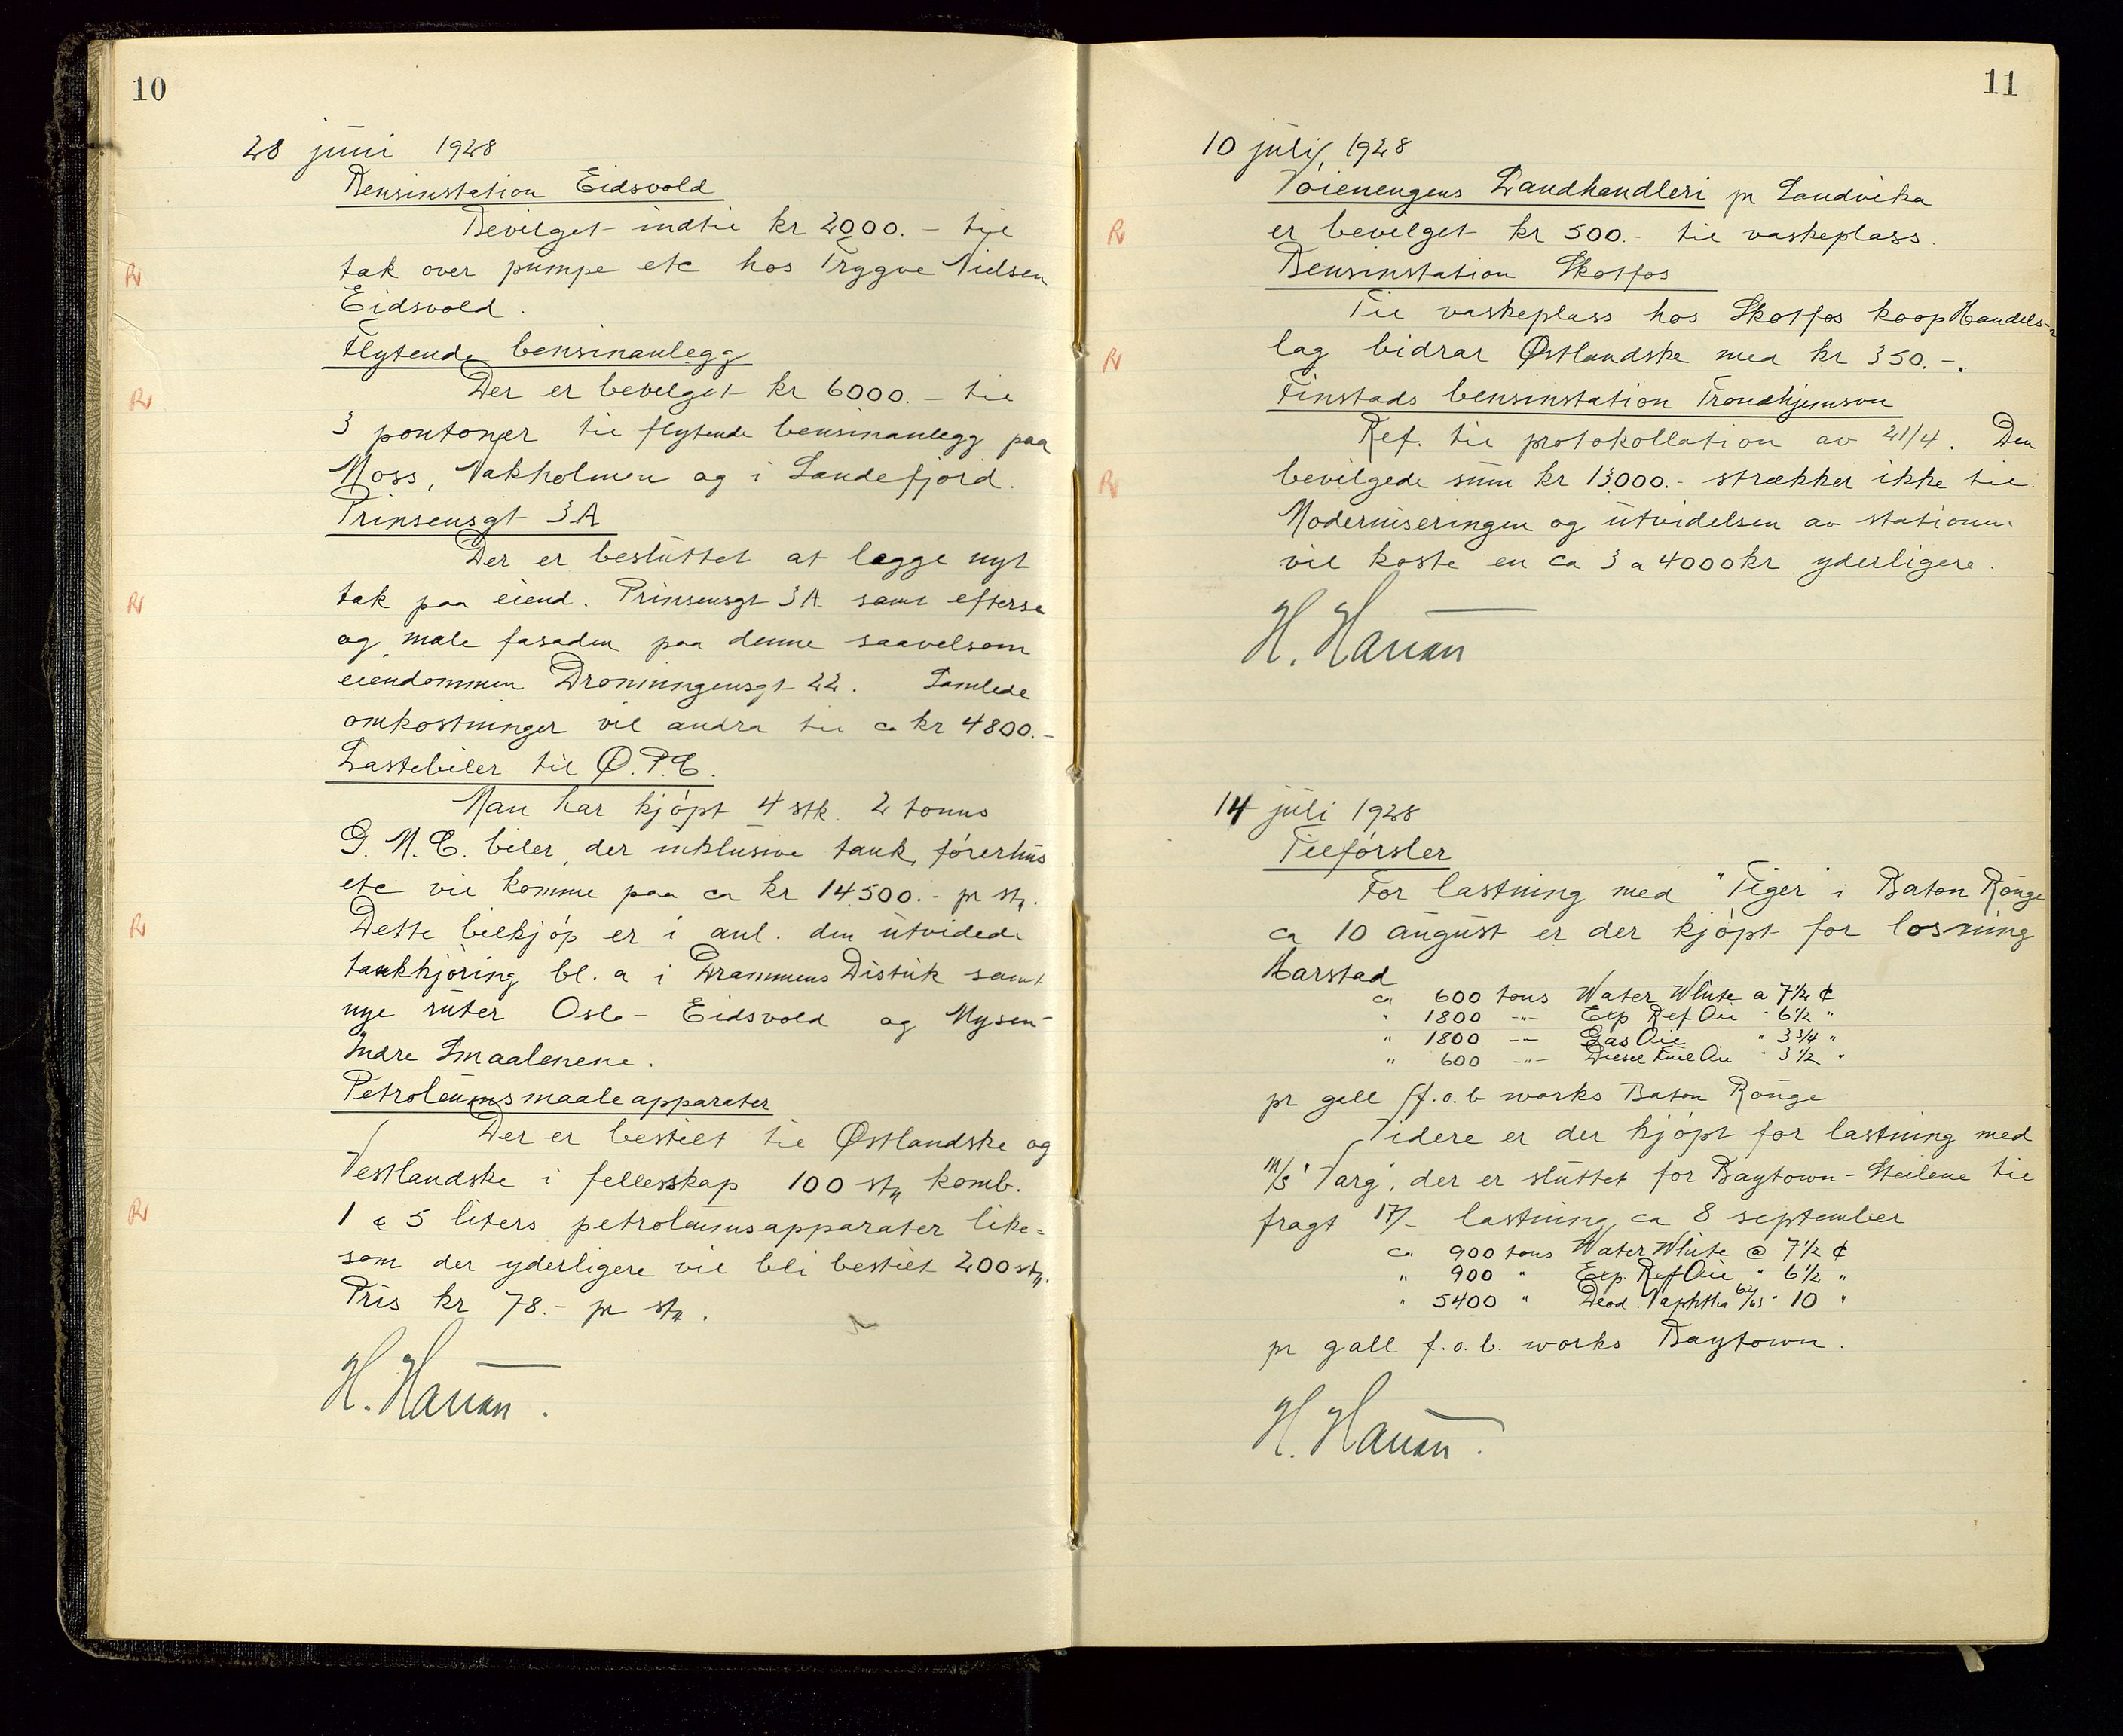 10
28 juni 1928
Bensinstation Eidsvold
Bevilget indtil kr 2000.- til
R
tak over pumpe etc hos Trygve Nielsen
Eidsvold.
Flytende bensinanlegg
Der er bevilget kr 6000.- til
R
3 pontoner til flytende bensinanlegg paa
Moss, Nakholmen og i Sandefjord.
Prinsensgt 3A
Der er besluttet at legge nyt
R
tak paa eiend. Prinsensgt 3A samt efterse
og male fasaden paa denne saavelsom
eiendommen Dronningensgt 22. Samlede
omkostninger vil andra til ca kr 4800.-
Lastebiler til Ø.P.C.
Man har kjöpt 4 stk. 2 tonns
G.M.C. biler, der inklusive tank, förerhus
etc vil komme paa ca kr 14.500.- pr stk.
R
Dette bilkjöp er i anl. den utvidede
tankkjöring bl. a i Drammens Distrik samt
nye ruter Oslo - Eidsvold og Mysen-
Indre Smaalenene.
Petroleumsmaaleapparater
Der er bestilt til Østlandske og
Vestlandske i fellesskap 100 stk komb.
R
1 & 5 liters petroleumsapparater like=
som der yderligere vil bli bestilt 200 stk.
Pris kr 78.- pr stk.
H. Hansen.
11
10 juli, 1928
Vöienengens Landhandleri pr Sandvika
R
er bevilget kr 500.- til vaskeplass.
Bensinstation Skotfos
Til vaskeplass hos Skotfos koop Handels-
R
lag bidrar Østlandske med kr 350.-.
Finstads bensinstation Trondhjemsvn
Ref. til protokollation av 21/4. Den
R
bevilgede sum kr 13.000.- strækker ikke til.
Moderniseringen og utvidelsen av stationen
vil koste en ca 3 a 4000 kr yderligere.
H. Hansen
14 juli 1928
Tilförsler
For lastning med "Tiger" i Baton Rouge
ca 10 august er der kjöpt for losning
Harstad
ca 600 tons Water White a 7 1/2 ¢
" 1800 -"- Exp Ref Oil " 6 1/2 "
" 1800 -"- Gas Oil " 3 3/4 "
" 600 -"- Diesel Fuel Oil " 3 1/2 "
pr gall f.o.b works Baton Rouge
Videre er der kjöpt for lastning med
m/s "Varg", der er sluttet for Baytown - Steilene til
fragt 17/- lastning ca 8 september
ca 900 tons Water White @ 7 1/2 ¢
" 900 " Exp. Ref Oil " 6 1/2 "
" 5400 " Deod. Naphtha 62/63 " 10 "
pr gall f.o.b. works Baytown.
H. Hansen.